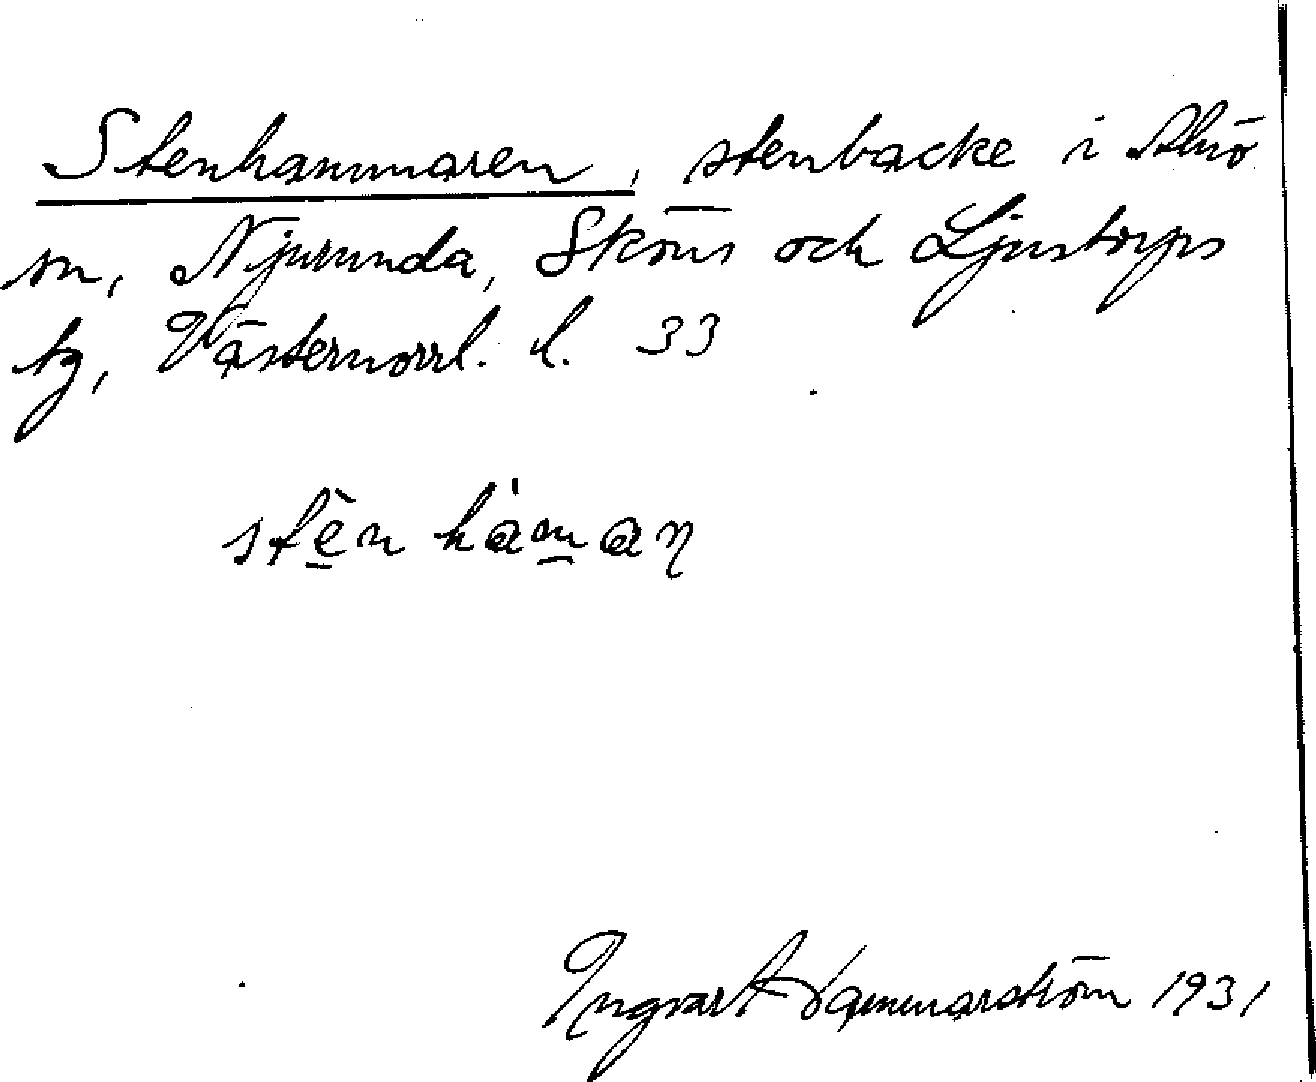 Stenhammaren, stenbacke i Alnö
sn, Njurunda, Sköns och Ljustorps
tg, Västernorrl. l. 33
stèn hàmaɳ
Ingvar Hammarström 1931